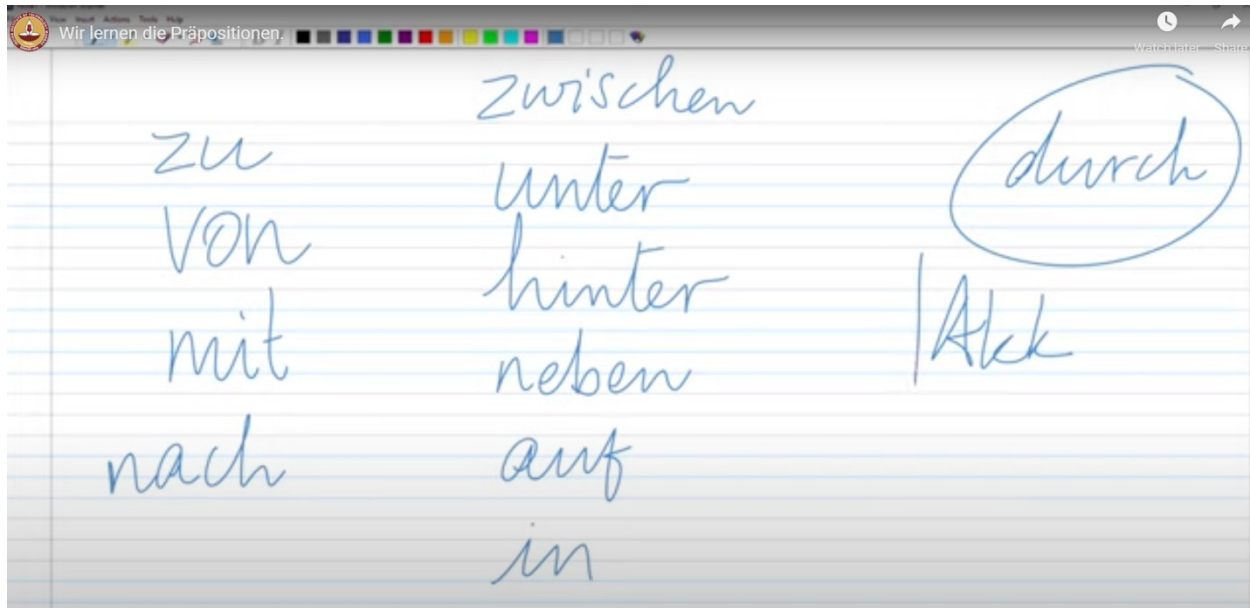 View Insert Actions Tools Help
Wir lernen die Präpositionen.
Watch later
Share
zu
von
mit
nach
zwischen
unter
hinter
neben
auf
in
durch
Akk